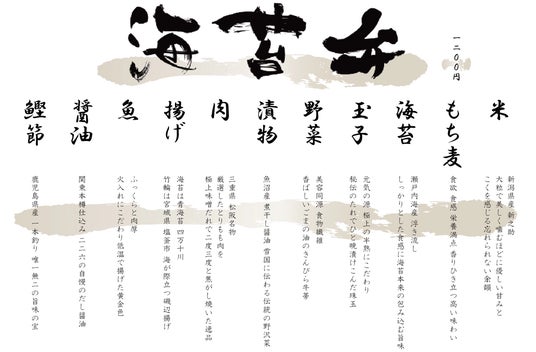 海苔弁
一二〇〇円
米
新潟県産 新之助
大粒で美しく噛むほどに優しい甘みと
こくを感じる忘れられない余韻
もち麦
食欲 食感 栄養満点 香りひき立つ高い味わい
海苔
瀬戸内海産 浮き流し
しっかりとした食感に海苔本来の包み込む旨味
玉子
元気の源 極上の半熟にこだわり
秘伝のたれでひと晩漬けこんだ珠玉
野菜
美容同源 食物繊維
香ばしいごまの油のきんぴら牛蒡
漬物
魚沼産 煮干し醤油 雪国に伝わる伝統の野沢菜
肉
三重県 松阪名物
厳選したとりもも肉を
極上味噌だれで二度三度と蒸がし焼いた逸品
揚げ
海苔は青海苔 四万十川
竹輪は宮城県 塩釜市 海が際立つ磯辺揚げ
魚
ふっくらと肉厚
火入れにこだわり低温で揚げた黄金色
醤油
関東本樽仕込み 二二六の自慢のだし醤油
鰹節
鹿児島県産 一本釣り 唯一無二の旨味の宝